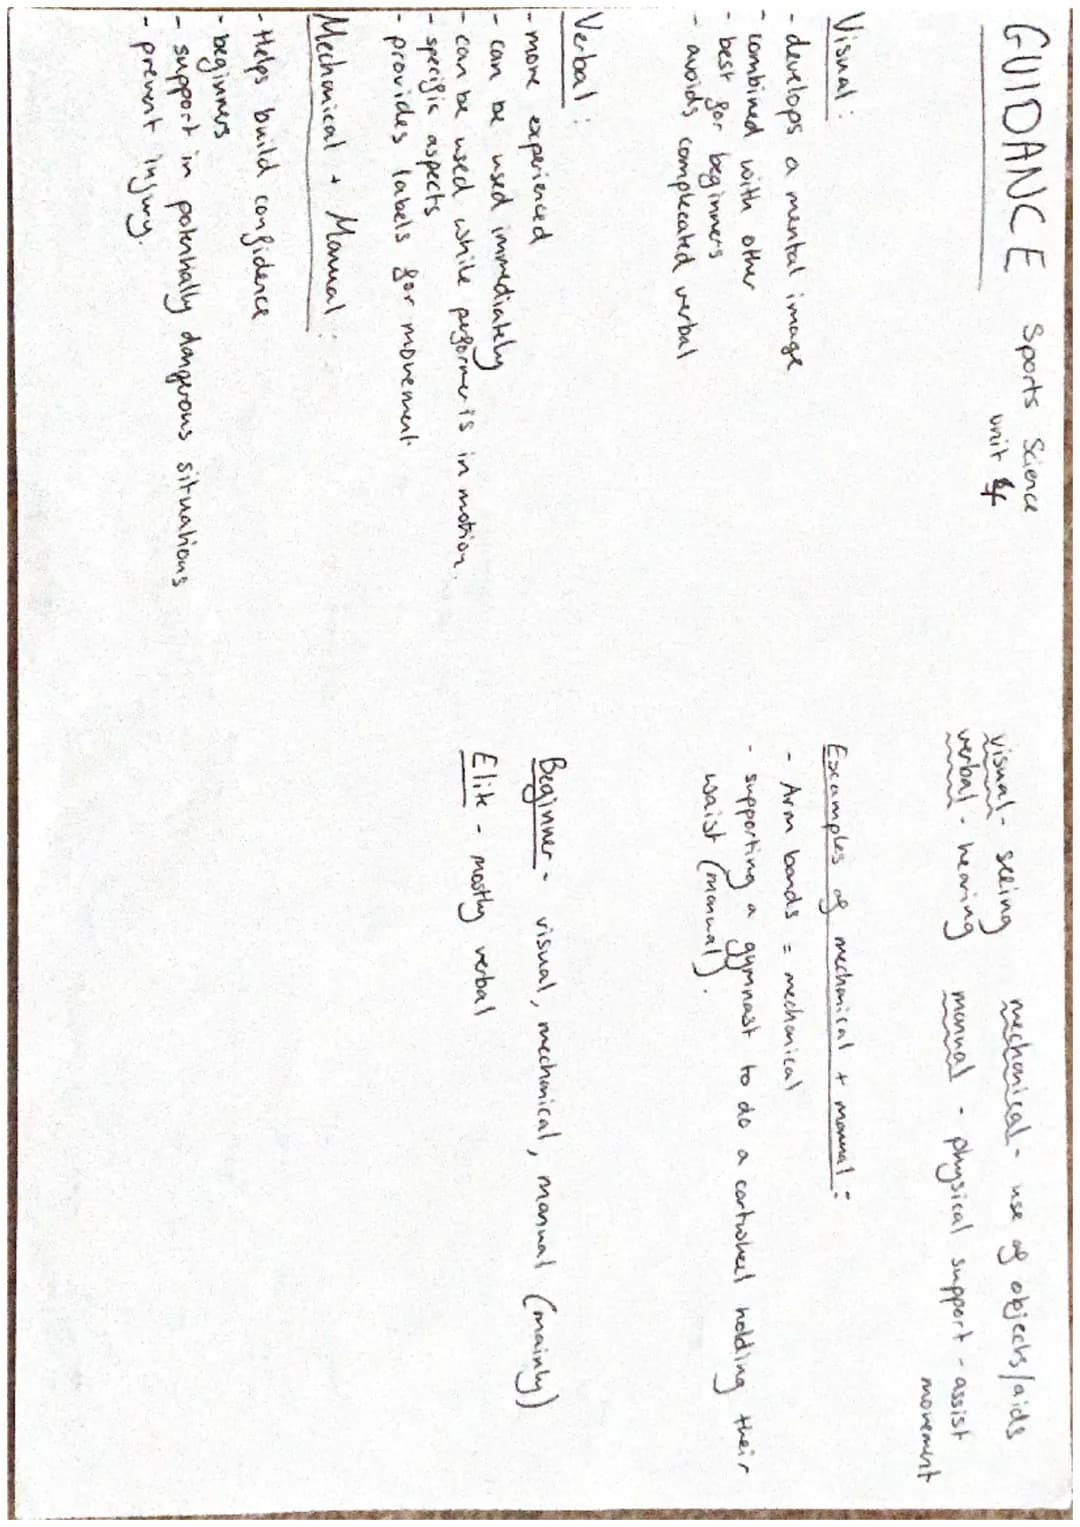 GUIDANCE Sports Science
unit 4
visual - seeing mechanical - use of objects/aids
verbal - hearing manual - physical support - assist
movement
Visual:
- develops a mental image
- combined with other
- best for beginners
- avoids complecated verbal
Examples of mechanical + manual:
- Arm bands = mechanical
- supporting a gymnast to do a cartwheel holding their
waist (manual).
Verbal:
- more experienced
- can be used immediately
- can be used while performer is in motion.
- specific aspects
- provides labels for movement
Beginner - visual, mechanical, manual (mainly)
Elite - mostly verbal
Mechanical + Manual:
- Helps build confidence
- beginners
- support in potentially dangerous situations
- prevent injury.